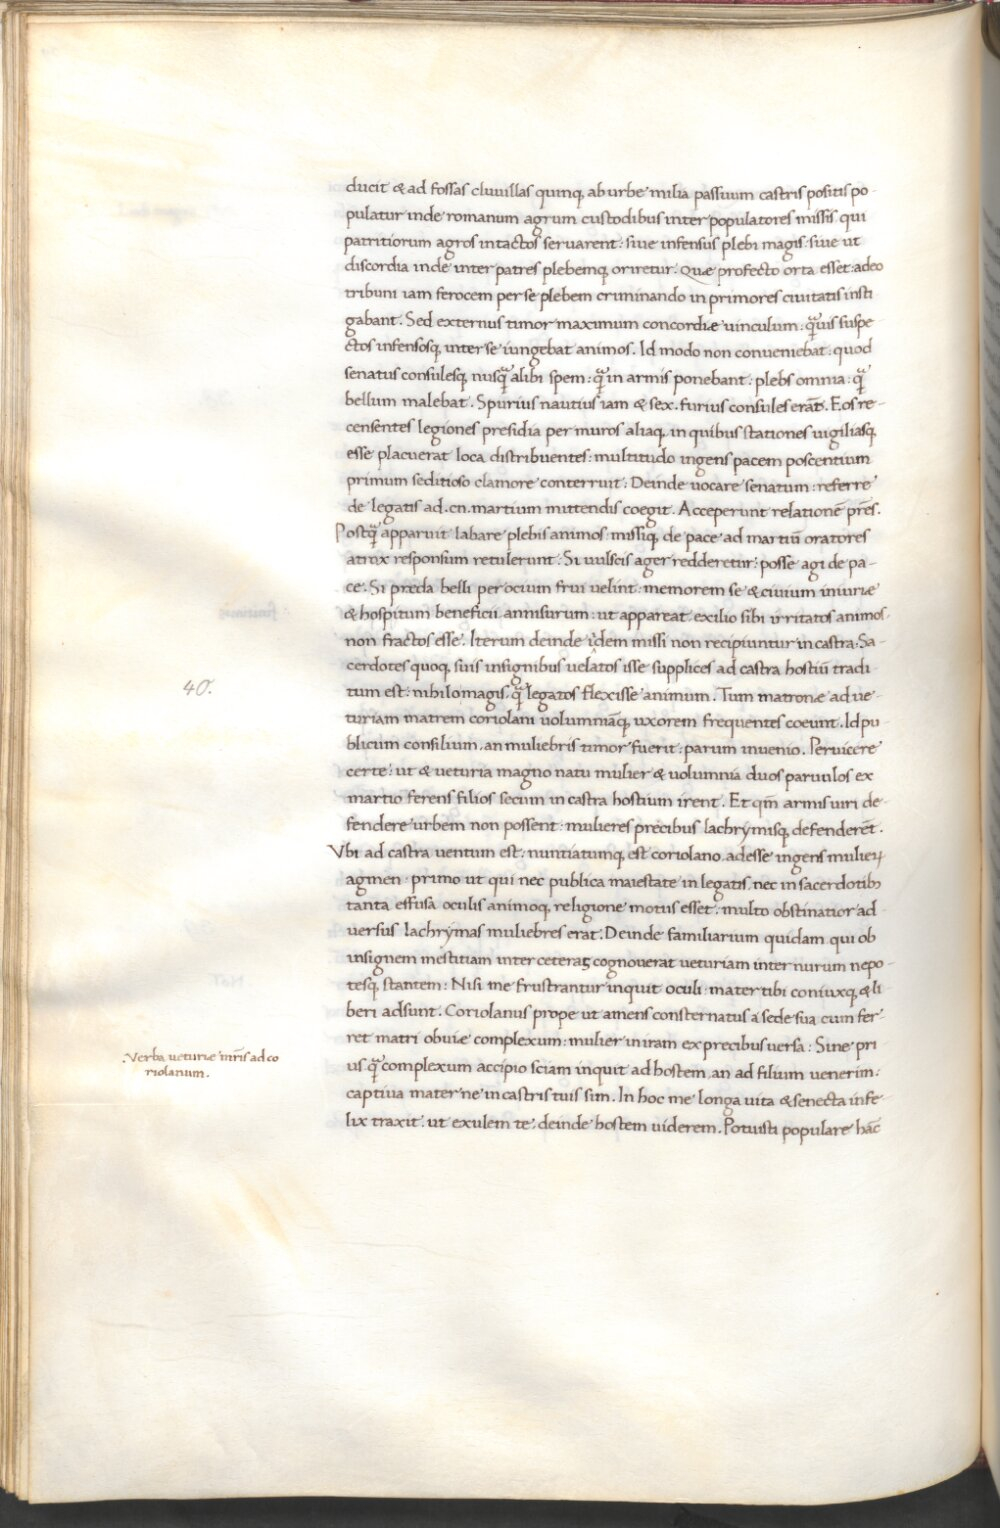 ducit & ad fossas cluuillas quinq; ab urbe milia passuum castris positis po-
pulatur inde romanum agrum custodibus inter populatores missis qui
patritiorum agros intactos seruarent: siue infensus plebi magis: siue ut
discordia inde inter patres plebemq; oriretur. Quæ profecto orta esset: adeo
tribuni iam ferocem per se plebem criminando in primores ciuitatis insti
gabant. Sed externus timor maximum concordiæ uinculum: q̃uis suspe-
ctos infensosq; inter se iungebat animos. Id modo non conueniebat: quod
senatus consulesq; nusq̃ alibi spem: q̃ in armis ponebant: plebs omnia: q̃
bellum malebat. Spurius nautius iam & sex. furius consules erãt. Eos re-
censentes legiones presidia per muros aliaq; in quibus stationes uigiliasq;
esse placuerat loca distribuentes: multitudo ingens pacem poscentium
primum seditioso clamore conterruit: Deinde uocare senatum: referre
de legatis ad .cn. martium mittendis coegit. Acceperunt relationẽ pr̃es.
Postq̃ apparuit labare plebis animos: missiq; de pace ad martiũ oratores
atrox responsum retulerunt. Si uulscis ager redderetur: posse agi de pa-
ce. Si preda belli per ocium frui uelint: memorem se & ciuium iniuriæ
& hospitum beneficii annisurum: ut appareat exilio sibi irritatos animos
non fractos esse. Iterum deinde iidem missi non recipiuntur in castra. Sa-
cerdotes quoq; suis insignibus uelatos isse supplices ad castra hostiũ tradi
tum est: nihilo magis q̃ legatos flexisse animum. Tum matronæ ad ue-
turiam matrem coriolani uolumniãq; uxorem frequentes coeunt. Id pu
blicum consilium, an muliebris timor fuerit: parum inuenio. Peruicere
certe: ut & ueturia magno natu mulier & uolumnia duos paruulos ex
martio ferens filios secum in castra hostium irent. Et qm̃ armis uiri de-
fendere urbem non possent: mulieres precibus lachrymisq; defenderẽt.
Vbi ad castra uentum est: nuntiatumq; est coriolano adesse ingens mulieꝝ
agmen: primo ut qui nec publica maiestate in legatis, nec in sacerdotibꝫ
tanta effusa oculis animoq; religione motus esset: multo obstinatior ad
uersus lachrymas muliebres erat. Deinde familiarium quidam qui ob
insignem mestitiam inter ceteras cognouerat ueturiam inter nurum nepo-
tesq; stantem: Nisi me frustrantur inquit oculi: mater tibi coniuxq; & li
beri adsunt. Coriolanus prope ut amens consternatus a sede sua cum fer-
ret matri obuiæ complexum: mulier in iram ex precibus uersa: Sine pri
us q̃ complexum accipio sciam inquit ad hostem, an ad filium uenerim:
captiua mater ne in castris tuis sim. In hoc me longa uita & senecta infe-
lix traxit: ut exulem te, deinde hostem uiderem. Potuisti populare hãc
40.
.Verba ueturiæ mr̃is ad co
riolanum.